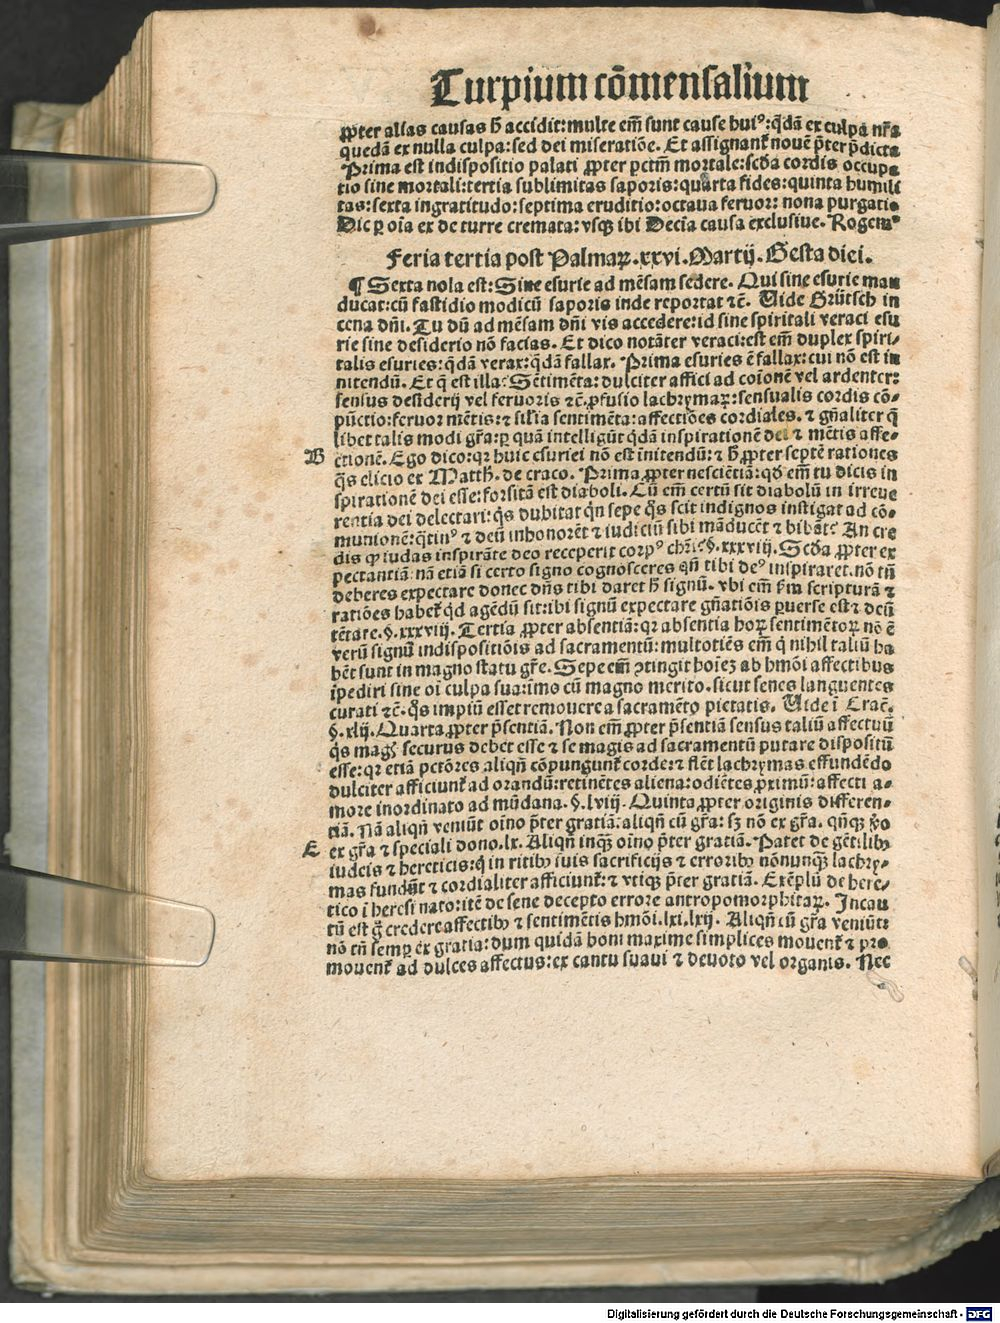 Turpium cōmensalium
ꝓpter alias causas h̄ accidit: multe em̄ sunt cause huiꝰ: q̄dā ex culpa nr̄a
quedā ex nulla culpa: sed dei miseratiōe. Et assignant᷑ nouē p̄ter p̄dicta
Prima est indispositio palati ꝓpter pctm̄ mortale: scd̄a cordis occupa
tio sine mortali: tertia sublimitas saporis: quarta fides: quinta humili
tas: sexta ingratitudo: septima eruditio: octaua feruor: nona purgatio
Dic ꝑ oīa ex de turre cremata: vsqꝫ ibi Decīa causa exclusiue. Rogemꝰ
Feria tertia post Palmaꝝ. xxvi. Martij. Gesta diei.
¶ Sexta nola est: Sine esurie ad mēsam sedere. Qui sine esurie man
ducat: cū fastidio modicū saporis inde reportat ⁊c̄. Uide Grütsch in
cena dn̄i. Tu dū ad mēsam dn̄i vis accedere: id sine spiritali veraci esu
rie sine desiderio nō facias. Et dico notāter veraci: est em̄ duplex spiri-
talis esuries: q̄dā verax: q̄dā fallax. Prima esuries ē fallax: cui nō est in
nitendū. Et q̄ est illa: Sētimēta: dulciter affici ad coīonē vel ardenter:
sensus desiderij vel feruoris ⁊c̄. ꝓfusio lachrymaꝝ: sensualis cordis cō-
pūctio: feruor mētis: ⁊ sil̄ia sentimēta: affectiōes cordiales. ⁊ gn̄aliter q̄
libet talis modi gr̄a: ꝑ quā intelligūt q̄dā inspirationē dei ⁊ mētis affe-
B
ctionē. Ego dico: qꝛ huic esuriei nō est īnitendū: ⁊ h̄ ꝓpter septē rationes
q̄s elicio ex Matth. de craco. Prima ꝓpter nesciētiā: qd̄ em̄ tu dicis in
spirationē dei esse: forsitā est diaboli. Cū em̄ certū sit diabolū in irreue
rentia dei delectari: q̄s dubitat qn̄ sepe q̄s scit indignos instigat ad cō-
munionē: q̄tinꝰ ⁊ deū inhonorēt ⁊ iudiciū sibi māducēt ⁊ bibāt? An cre
dis ꝙ iudas inspirāte deo receperit corpꝰ chr̄i? §. xxxviij. Scd̄a ꝓpter ex
pectantiā: nā etiā si certo signo cognosceres qn̄ tibi deꝰ inspiraret. nō tn̄
deberes expectare donec dn̄s tibi daret h̄ signū. vbi em̄ fm̄ scripturā ⁊
ratiōes habet᷑ qd agēdū sit: ibi signū expectare gn̄atiōis ꝑuerse est: ⁊ deū
tētare. §. xxxviij. Tertia ꝓpter absentiā: qꝛ absentia hoꝝ sentimētoꝝ nō ē
verū signū indispositiōis ad sacramentū: multotiēs em̄ q̇ nihil taliū ha
bēt sunt in magno statu gr̄e. Sepe em̄ ↄtingit hoīeꝫ ab hmōi affectibus
īpediri sine oī culpa sua: īmo cū magno merito. sicut senes languentes
curati ⁊c̄. q̄s impiū esset remouere a sacramēto pietatis. Uide ī Crac̄.
§. xlij. Quarta ꝓpter p̄sentiā. Non em̄ ꝓpter p̄sentiā sensus taliū affectuū
q̄s mag᷑ securus debet esse ⁊ se magis ad sacramentū putare dispositū
esse: qꝛ etiā pctōres aliqn̄ cōpungunt᷑ corde: ⁊ flēt lachrymas effundēdo
dulciter afficiunt᷑ ad orandū: retinētes aliena: odiētes ꝓximū: affecti a-
more inordinato ad mūdana. §. lviij. Quinta ꝓpter originis differen-
tiā. Nā aliqn̄ veniūt oīno p̄ter gratiā: aliqn̄ cū gr̄a: sꝫ nō ex gr̄a. qn̄qꝫ ꝟo
E
ex gr̄a ⁊ speciali dono. lx. Aliqn̄ inqꝫ oīno p̄ter gratiā. Patet de gētilibꝰ
iudeis ⁊ hereticis: q̇ in ritibꝰ suis sacrificijs ⁊ erroribꝰ nōnunqꝫ lachry-
mas fundūt ⁊ cordialiter afficiunt᷑: ⁊ vtiqꝫ p̄ter gratiā. Exēplū de here-
tico ī heresi nato: itē de sene decepto errore antropomorphitaꝝ. Incau
tū est g̊ credere affectibꝰ ⁊ sentimētis hmōi. lxi. lxij. Aliqn̄ cū gr̄a veniūt:
nō tn̄ semꝑ ex gratia: dum quidā boni maxime simplices mouent᷑ ⁊ pro
mouent᷑ ad dulces affectus: ex cantu suaui ⁊ deuoto vel organis. Nec
Digitalisierung gefördert durch die Deutsche Forschungsgemeinschaft - DFG